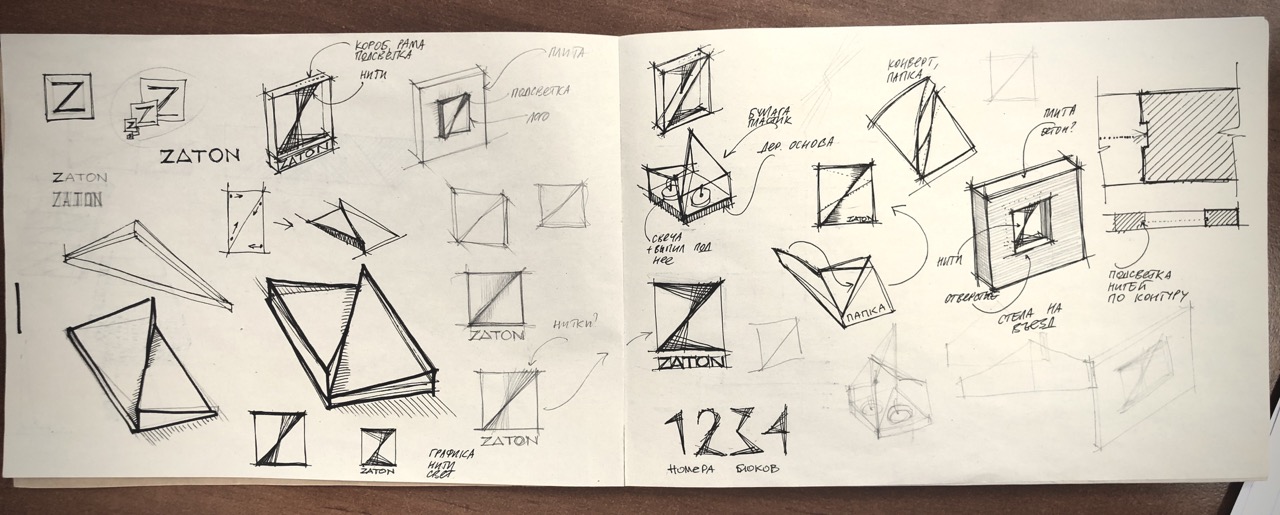 Z
Z
Z
Z
ZATON
ZATON
ZATON
КОРОБ, РАМА
ПОДСВЕТКА
НИТИ
ZATON
ПЛИТА
ПОДСВЕТКА
ЛОГО
ZATON
НИТКИ?
ZATON
ZATON
ГРАФИКА
НИТИ
СВЕТ
БУМАГА
ПЛАСТИК
ДЕР. ОСНОВА
СВЕЧА
+ ВЫПИЛ ПОД
НЕЕ
КОНВЕРТ,
ПАПКА
ZATON
ПАПКА
ZATON
1 2 3 4
НОМЕРА БЛОКОВ
ПЛИТА
БЕТОН?
НИТИ
ОТВЕРСТИЕ
СТЕЛА НА
ВЪЕЗД
ПОДСВЕТКА
НИТЕЙ
ПО КОНТУРУ